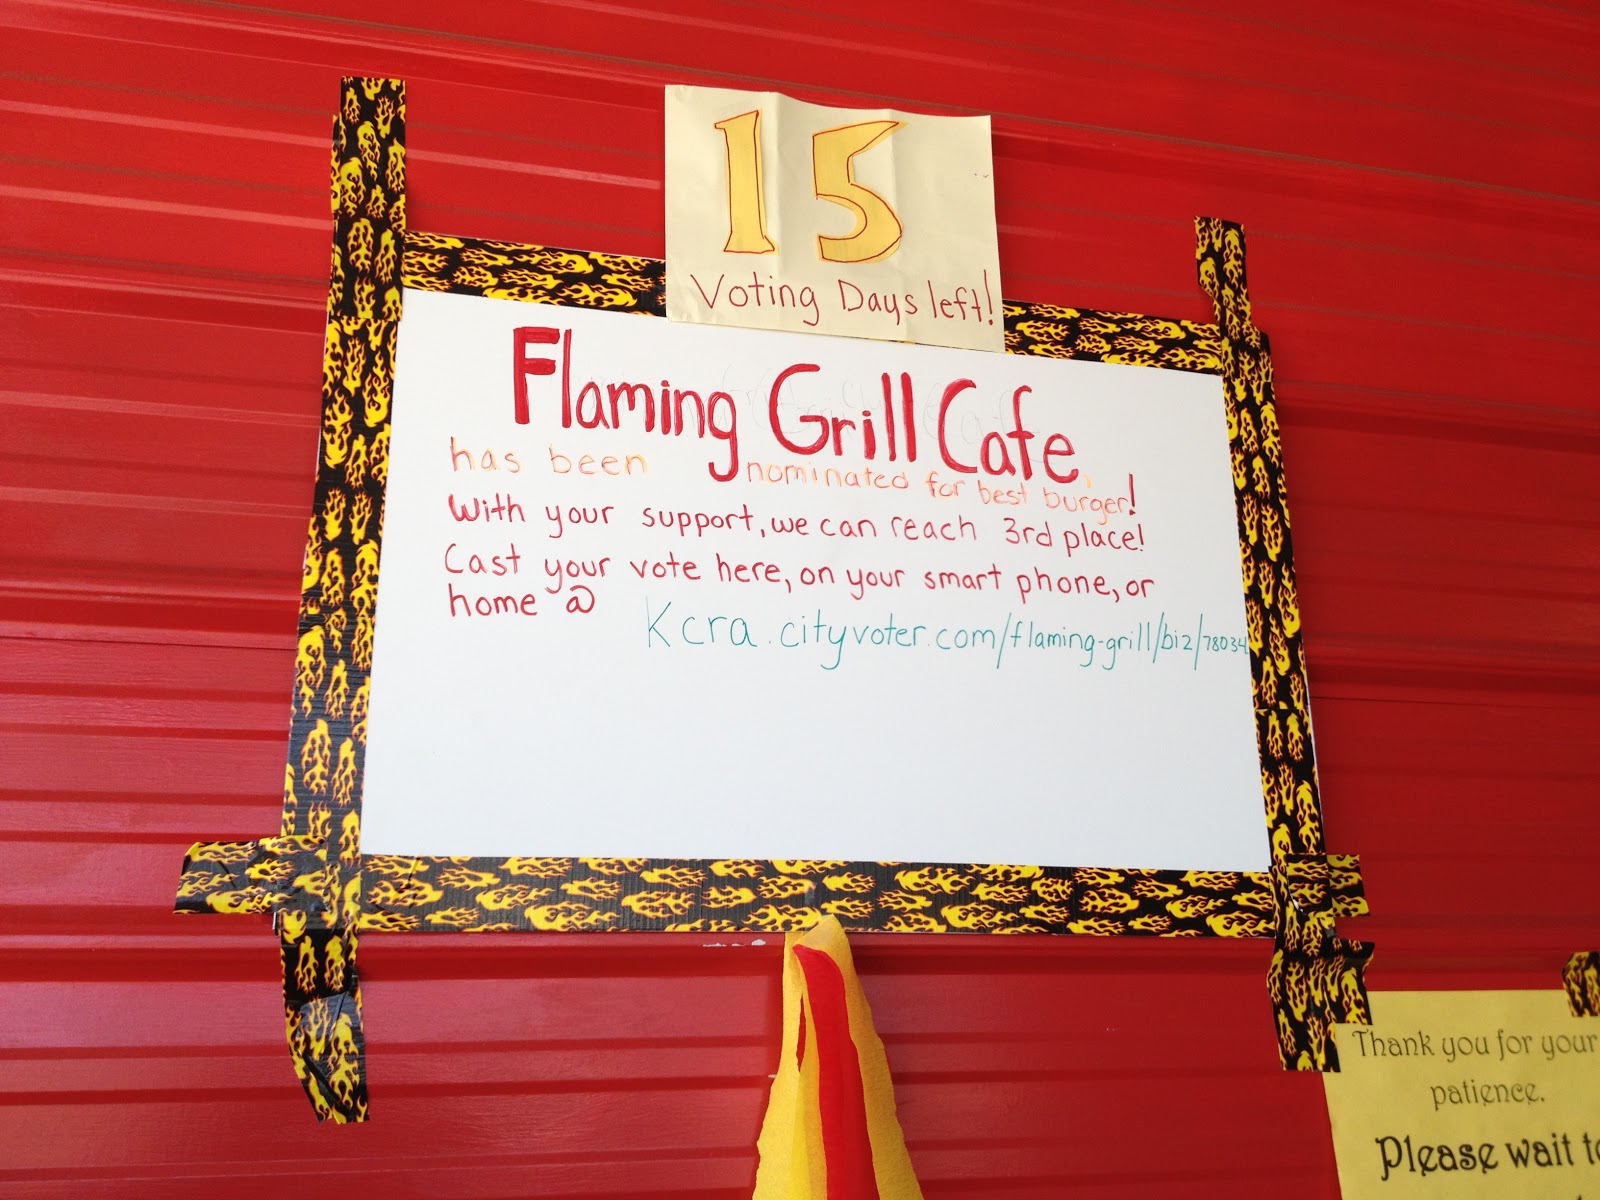 15
Voting Days left!
Flaming Grill Cafe,
has been nominated for best burger!
With your support, we can reach 3rd place!
Cast your vote here, on your smart phone, or
home @
Kcra.cityvoter.com/flaming-grill/biz/78034
Thank you for your
patience.
Please wait to